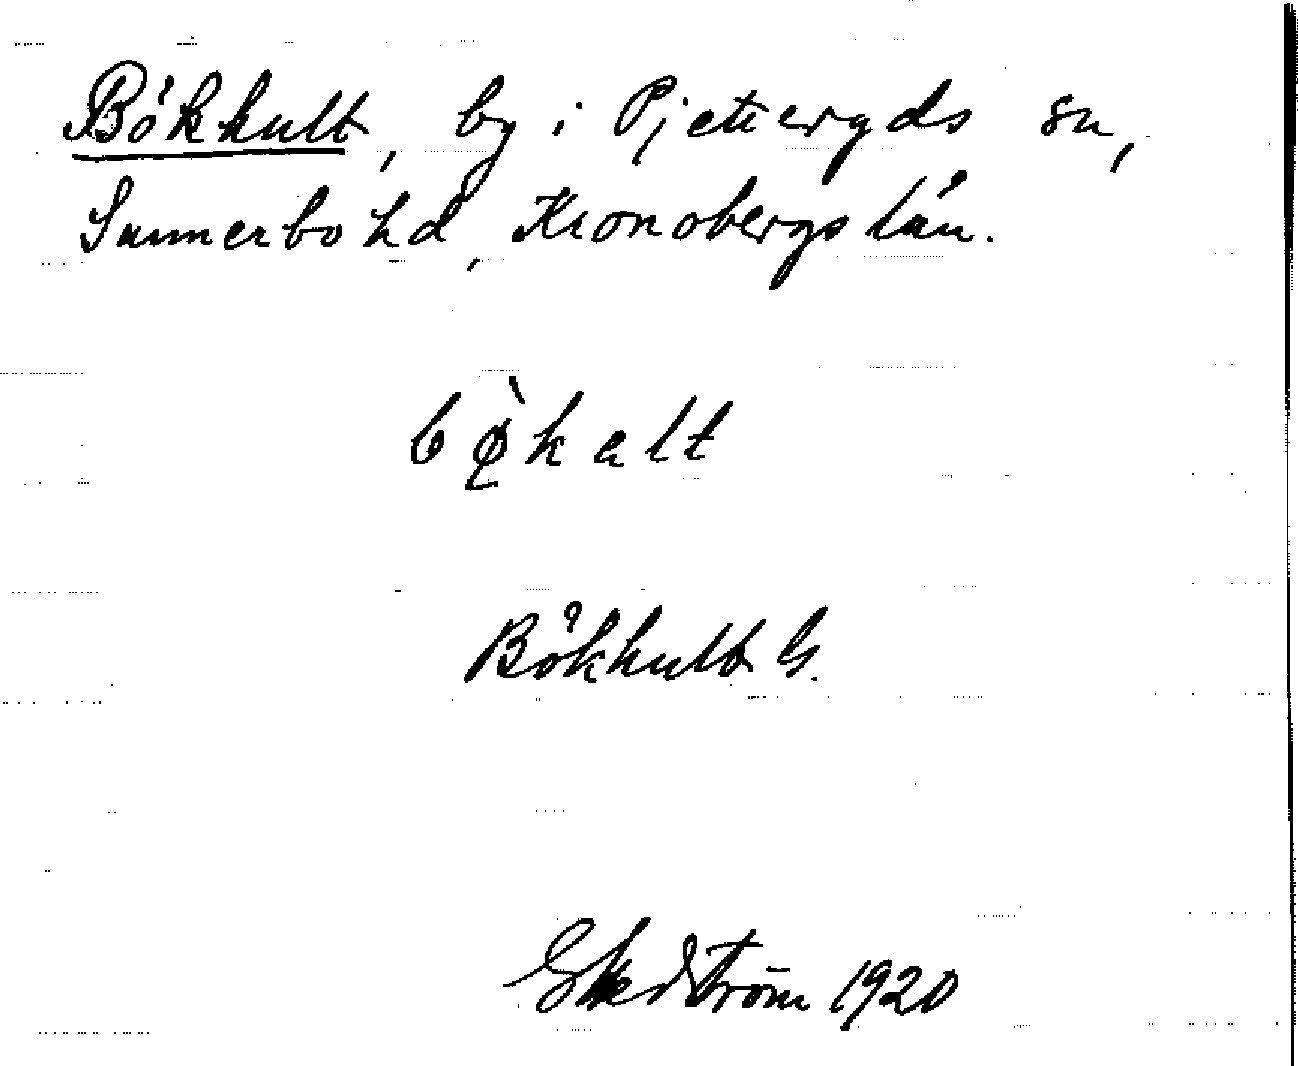 Bökhult, by i Pjetteryds sn,
Sunnerbo hd, Kronobergs län.
bø̀kalt
Bökhult G.
1920